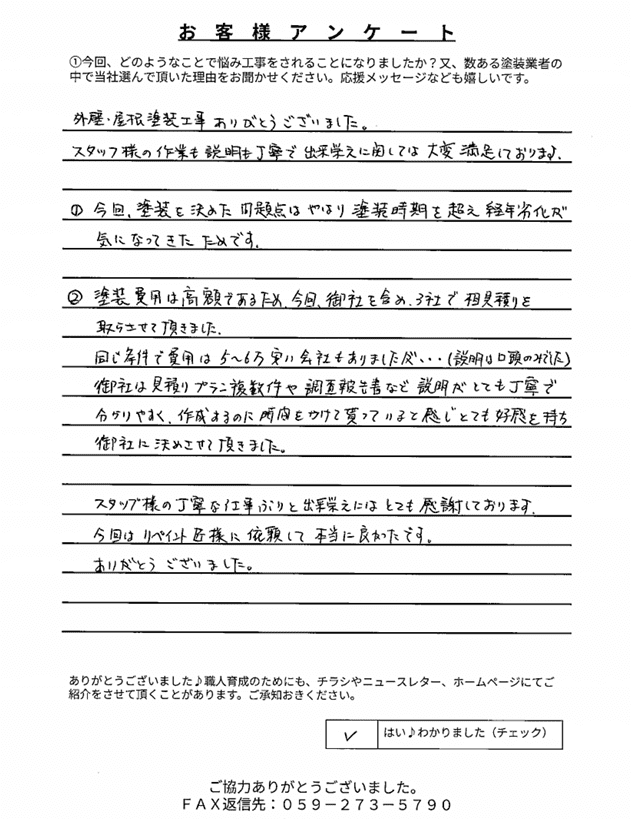 お客様アンケート
①今回、どのようなことで悩み工事をされることになりましたか？又、数ある塗装業者の
中で当社選んで頂いた理由をお聞かせください。応援メッセージなども嬉しいです。
外壁・屋根塗装工事ありがとうございました。
スタッフ様の作業も説明も丁寧で出来栄えに関しては大変満足しております。
① 今回、塗装を決めた問題点はやはり塗装時期を超え経年劣化が
気になってきたためです。
② 塗装費用は高額であるため、今回、御社を含め、3社で相見積りを
取らさせて頂きました。
同じ条件で費用は5〜6万安い会社もありましたが、・・(説明は口頭のみでした)
御社は見積りプラン複数件や調査報告書など説明がとても丁寧で
分かりやすく、作成するのに時間をかけて貰っていると感じとても好感を持ち
御社に決めさせて頂きました。
スタッフ様の丁寧な仕事ぶりと出来栄えにはとても感謝しております。
今回はリペイント匠様に依頼して本当に良かったです。
ありがとうございました。
ありがとうございました♪職人育成のためにも、チラシやニュースレター、ホームページにてご
紹介をさせて頂くことがあります。ご承知おきください。
✓ はい♪わかりました（チェック）
ご協力ありがとうございました。
ＦＡＸ返信先：０５９－２７３－５７９０